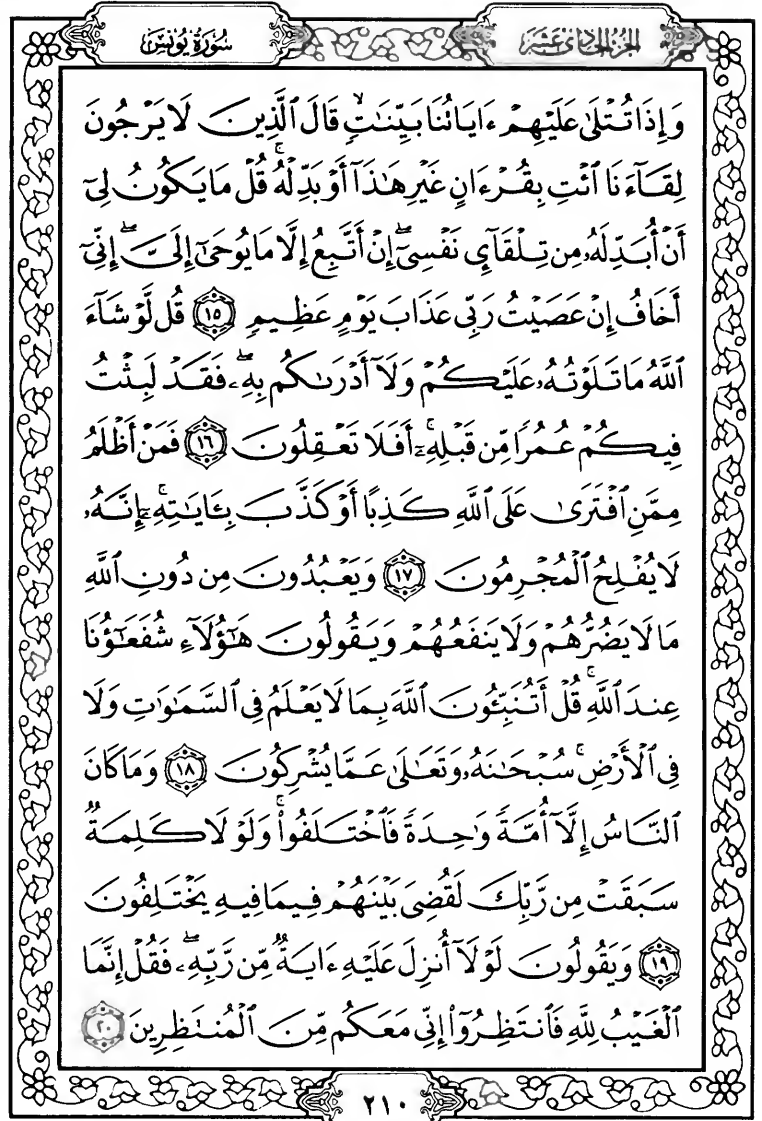 الجزء الحادي عشر
سُورَةُ يُونُسَ
وَإِذَا تُتْلَىٰ عَلَيْهِمْ ءَايَاتُنَا بَيِّنَٰتٍ ۙ قَالَ ٱلَّذِينَ لَا يَرْجُونَ
لِقَآءَنَا ٱئْتِ بِقُرْءَانٍ غَيْرِ هَٰذَآ أَوْ بَدِّلْهُ ۚ قُلْ مَا يَكُونُ لِىٓ
أَنْ أُبَدِّلَهُۥ مِن تِلْقَآئِ نَفْسِىٓ ۖ إِنْ أَتَّبِعُ إِلَّا مَا يُوحَىٰٓ إِلَىَّ ۖ إِنِّىٓ
أَخَافُ إِنْ عَصَيْتُ رَبِّى عَذَابَ يَوْمٍ عَظِيمٍ ١٥ قُل لَّوْ شَآءَ
ٱللَّهُ مَا تَلَوْتُهُۥ عَلَيْكُمْ وَلَآ أَدْرَىٰكُم بِهِۦ ۖ فَقَدْ لَبِثْتُ
فِيكُمْ عُمُرًا مِّن قَبْلِهِۦٓ ۚ أَفَلَا تَعْقِلُونَ ١٦ فَمَنْ أَظْلَمُ
مِمَّنِ ٱفْتَرَىٰ عَلَى ٱللَّهِ كَذِبًا أَوْ كَذَّبَ بِـَٔايَٰتِهِۦٓ ۚ إِنَّهُۥ
لَا يُفْلِحُ ٱلْمُجْرِمُونَ ١٧ وَيَعْبُدُونَ مِن دُونِ ٱللَّهِ
مَا لَا يَضُرُّهُمْ وَلَا يَنفَعُهُمْ وَيَقُولُونَ هَٰٓؤُلَآءِ شُفَعَٰٓؤُنَا
عِندَ ٱللَّهِ ۚ قُلْ أَتُنَبِّـُٔونَ ٱللَّهَ بِمَا لَا يَعْلَمُ فِى ٱلسَّمَٰوَٰتِ وَلَا
فِى ٱلْأَرْضِ ۚ سُبْحَٰنَهُۥ وَتَعَٰلَىٰ عَمَّا يُشْرِكُونَ ١٨ وَمَا كَانَ
ٱلنَّاسُ إِلَّآ أُمَّةً وَٰحِدَةً فَٱخْتَلَفُوا۟ ۚ وَلَوْلَا كَلِمَةٌ
سَبَقَتْ مِن رَّبِّكَ لَقُضِىَ بَيْنَهُمْ فِيمَا فِيهِ يَخْتَلِفُونَ
١٩ وَيَقُولُونَ لَوْلَآ أُنزِلَ عَلَيْهِ ءَايَةٌ مِّن رَّبِّهِۦ ۖ فَقُلْ إِنَّمَا
ٱلْغَيْبُ لِلَّهِ فَٱنتَظِرُوٓا۟ إِنِّى مَعَكُم مِّنَ ٱلْمُنتَظِرِينَ ٢٠
٢١٠